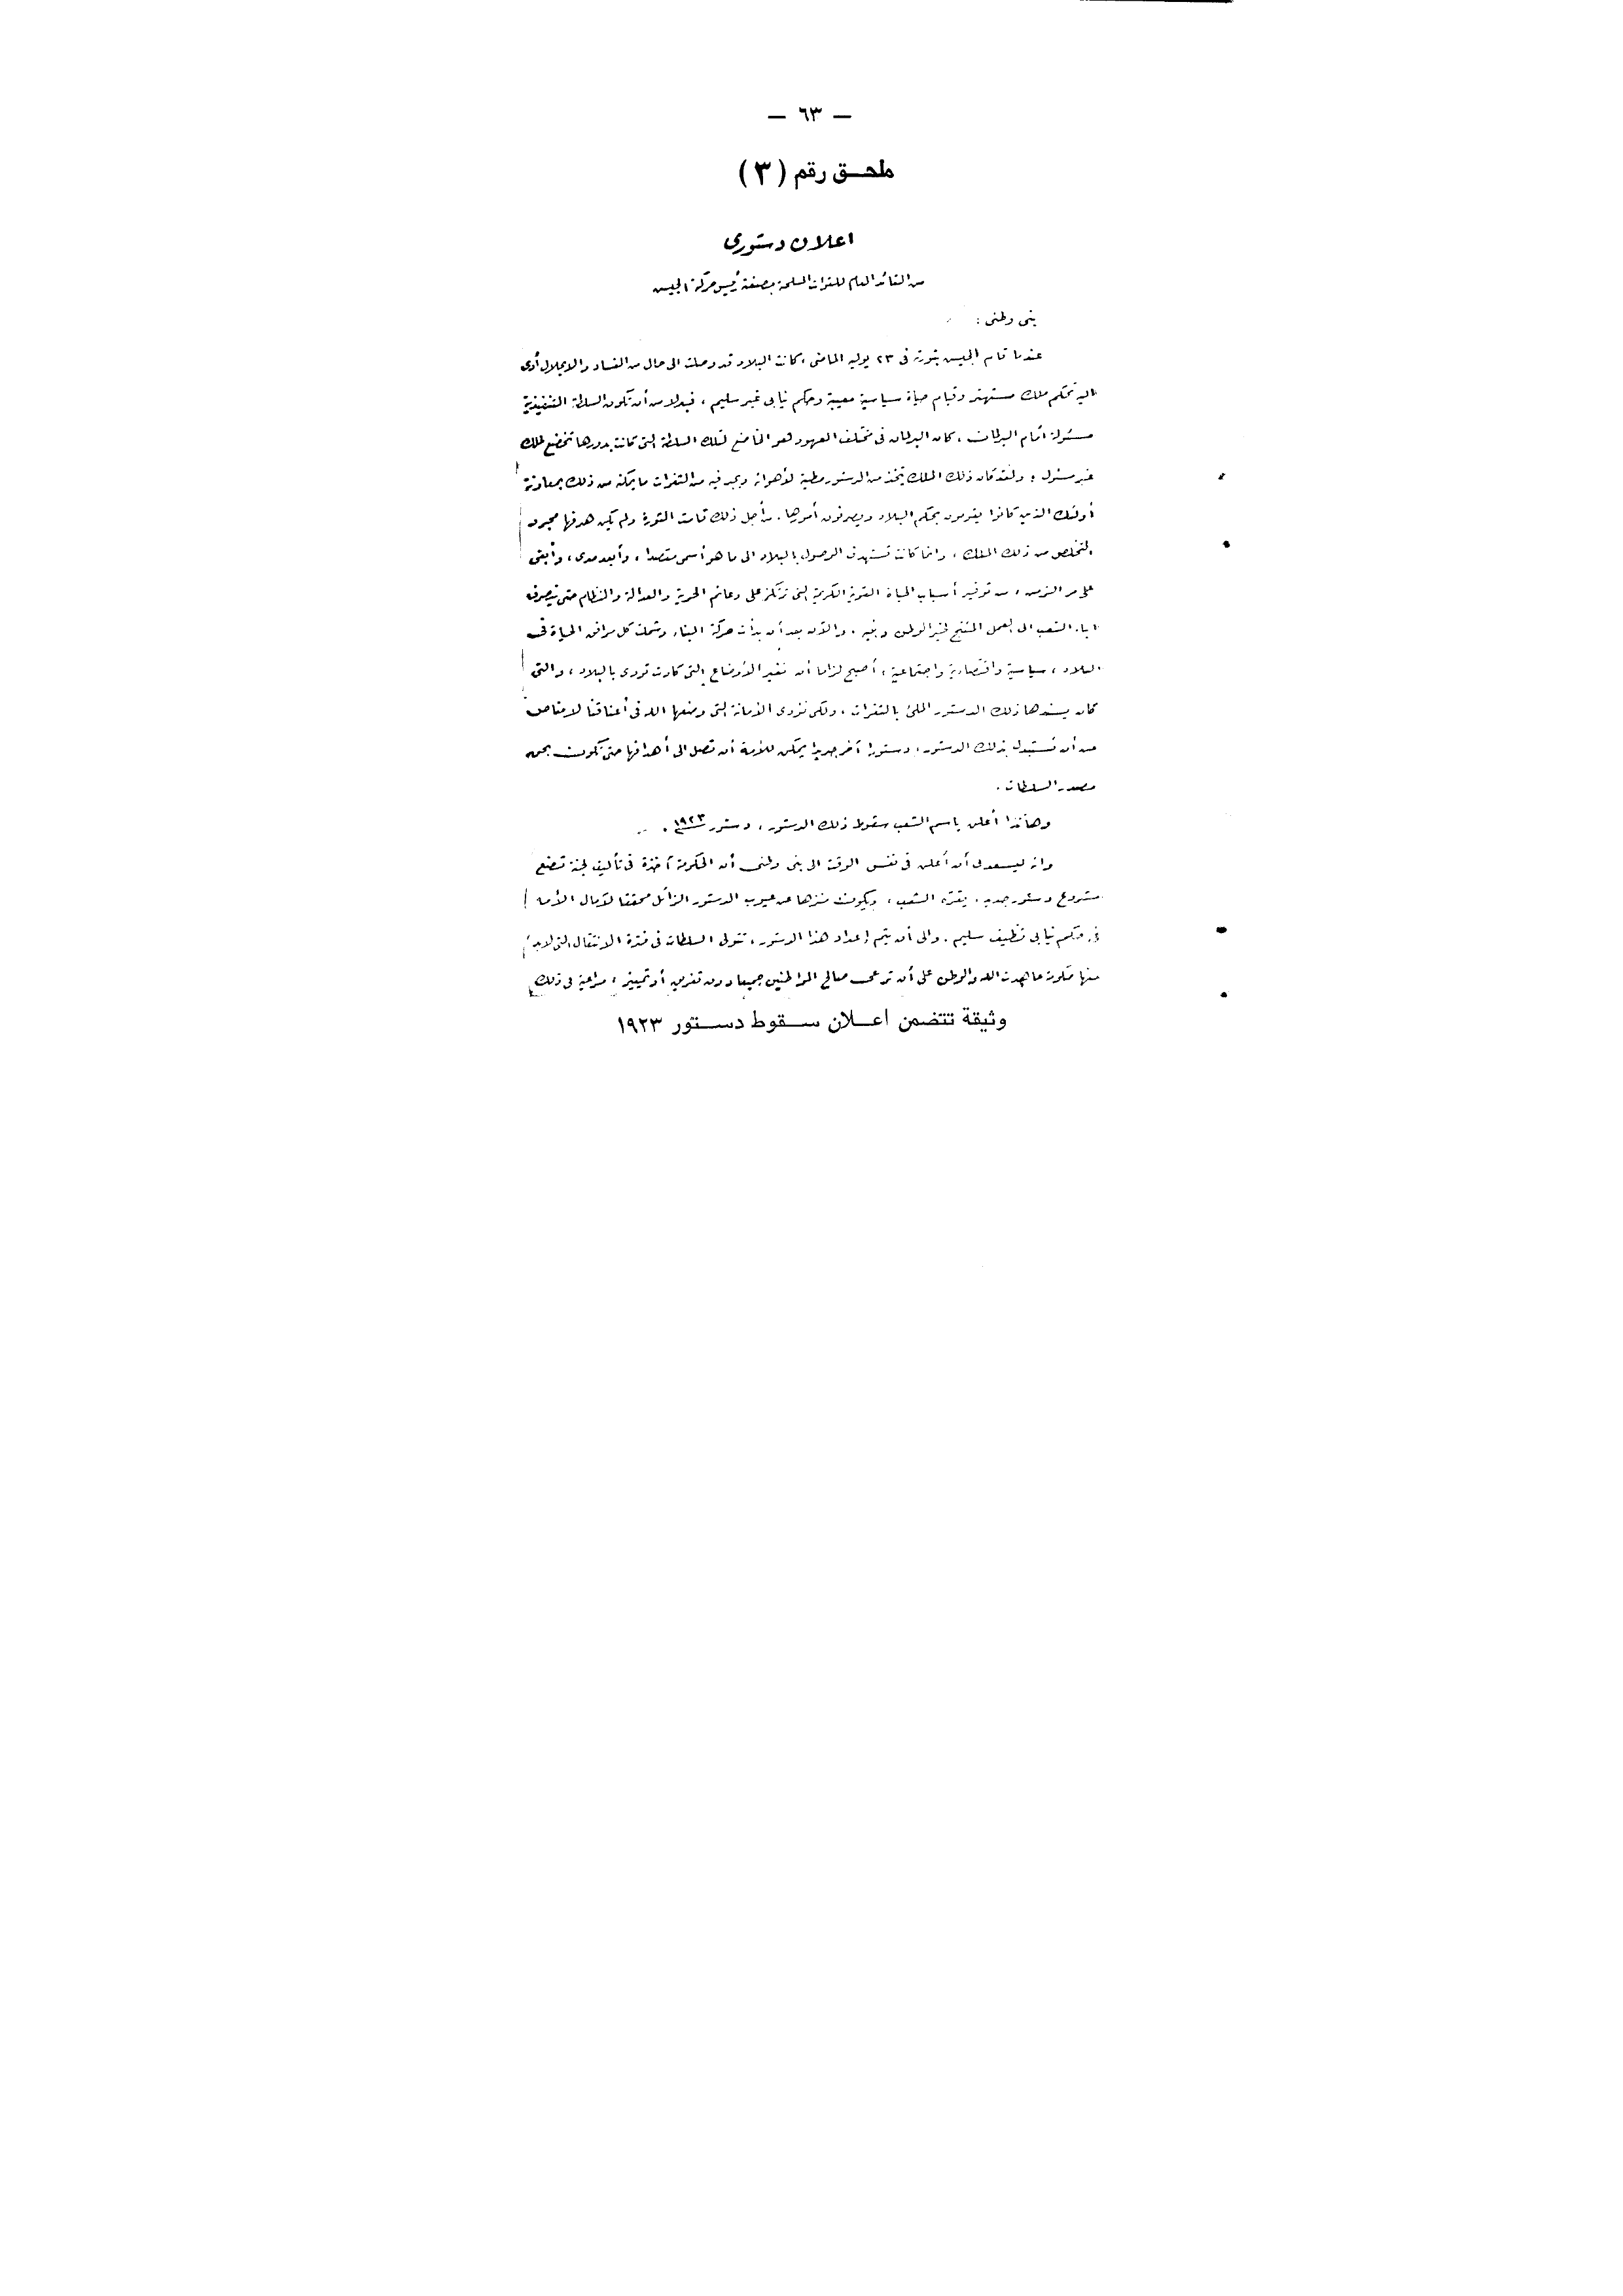 — ٦٣ —
ملحق رقم ( ٣ )
اعلان دستورى
من القائد العام للقوات المسلحة بصفته رئيس حركة الجيش
بنى وطنى :
عندما قام الجيش بثورته فى ٢٣ يوليه الماضى ، كانت البلاد قد وصلت الى حال من الفساد والانحلال أدى
اليه تحكم ملك مستهتر وقيام حياة سياسية معيبة وحكم نيابى غير سليم ، فبدلا من أن تكون السلطة التنفيذية
مسئولة أمام البرلمان ، كان البرلمان فى مختلف العهود هو الخاضع لتلك السلطة التى كانت بدورها تخضع لملك
غير مسئول ؛ ولقد كان ذلك الملك يتخذ من الدستور مطية لأهوائه ويجد فيه من الثغرات ما يمكنه من ذلك بمعاونة
أولئك الذين كانوا يقومون بحكم البلاد ويصرفون أمورها . من أجل ذلك قامت الثورة ولم يكن هدفها مجرد
التخلص من ذلك الملك ، وانما كانت تستهدف الوصول بالبلاد الى ما هو أسمى مقصدا ، وأبعد مدى ، وأبقى
على مر الزمن ، من توفير أسباب الحياة القوية الكريمة التى ترتكز على دعائم الحرية والعدالة والنظام حتى ينصرف
أبناء الشعب الى العمل المنتج لخير الوطن وبنيه . والآن بعد أن بدأت حركة البناء وشملت كل مرافق الحياة فى
البلاد ، سياسية واقتصادية واجتماعية ، أصبح لزاما أن نغير الأوضاع التى كادت تودى بالبلاد ، والتى
كان يسندها ذلك الدستور الملئ بالثغرات ، ولكى نؤدى الأمانة التى وضعها الله فى أعناقنا لا مناص
من أن نستبدل بذلك الدستور ، دستورا آخر جديدا يمكن للأمة أن تصل الى أهدافها حتى تكون بحق
مصدر السلطات .
وهأنذا أعلن باسم الشعب سقوط ذلك الدستور ، دستور ١٩٢٣ .
وانه ليسعدنى أن أعلن فى نفس الوقت الى بنى وطنى أن الحكومة آخذة فى تأليف لجنة تضع
مشروع دستور جديد ، يقره الشعب ، ويكون منزها عن عيوب الدستور الزائل محققا لآمال الأمة
فى حكم نيابى نظيف سليم . والى أن يتم إعداد هذا الدستور ، تتولى السلطات فى فترة الانتقال التى لابد
منها حكومة عاهدت الله والوطن على أن ترعى مصالح المواطنين جميعا دون تفريق أو تمييز ، مراعية فى ذلك
وثيقة تتضمن اعلان سقوط دستور ١٩٢٣